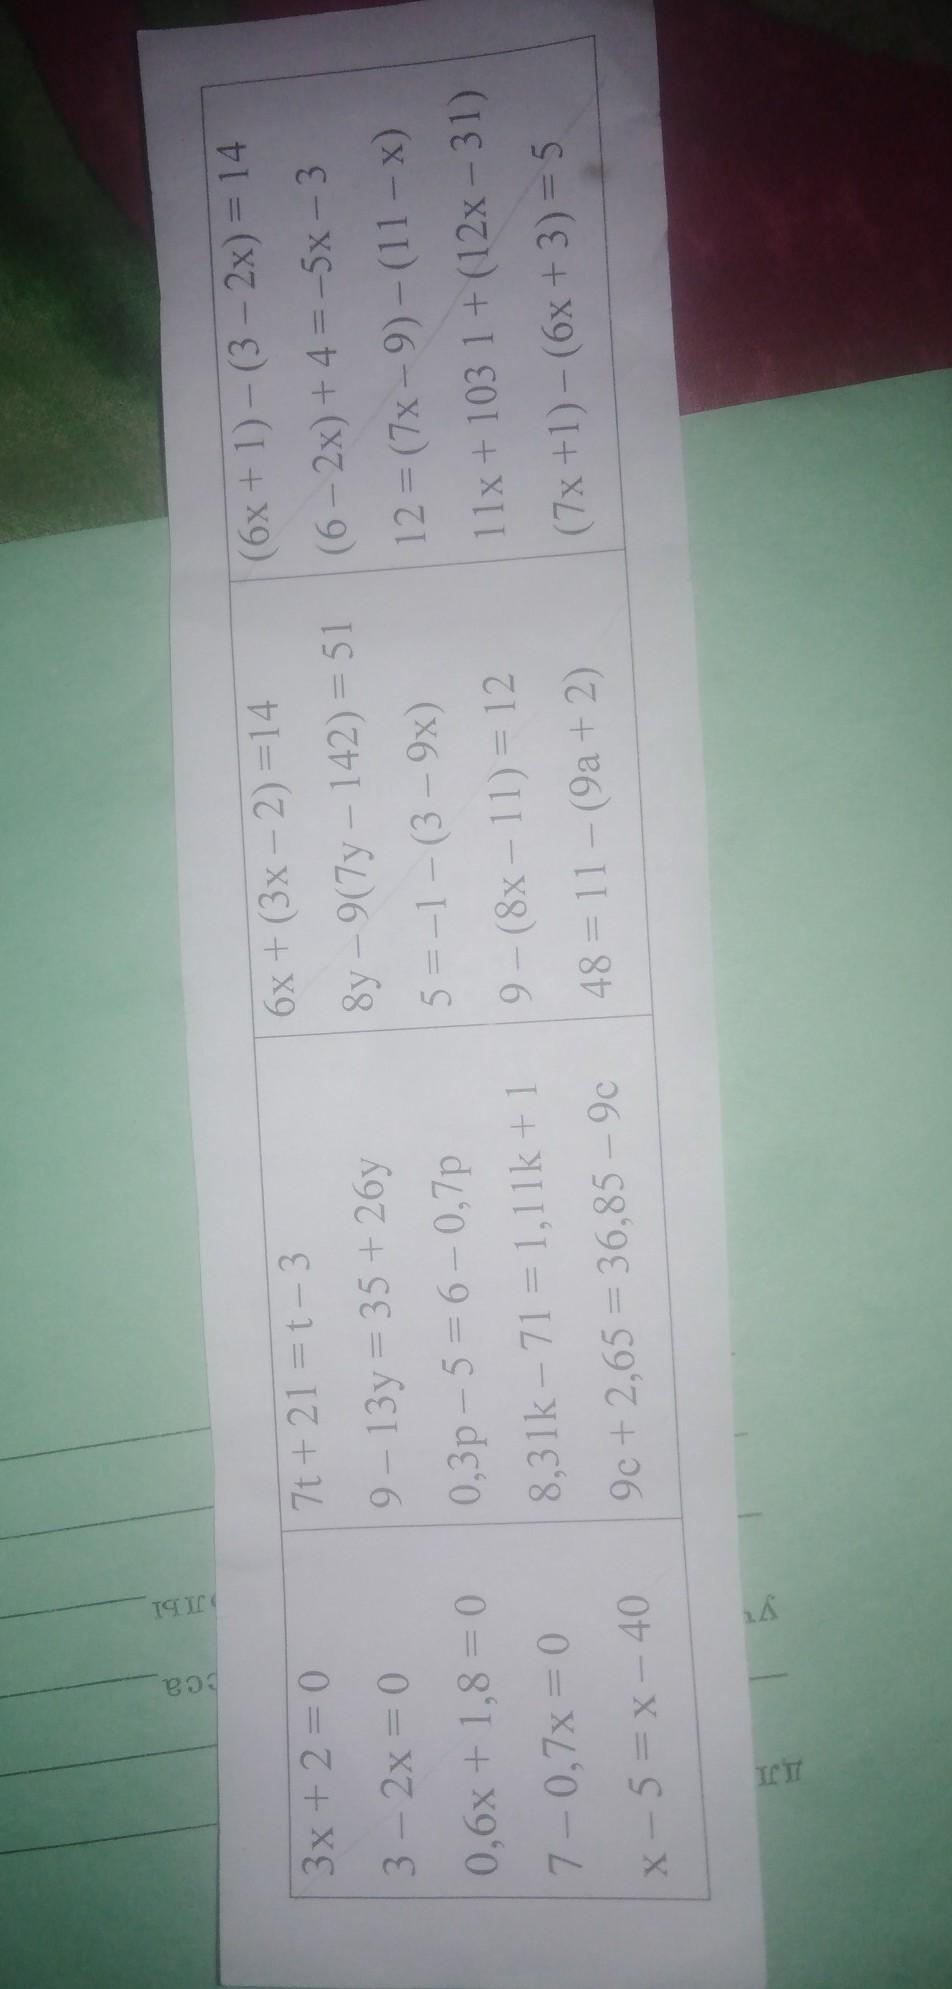 3x + 2 = 0
3 – 2x = 0
0,6x + 1,8 = 0
7 – 0,7x = 0
x – 5 = x – 40
7t + 21 = t – 3
9 – 13y = 35 + 26y
0,3p – 5 = 6 – 0,7p
8,31k – 71 = 1,11k + 1
9c + 2,65 = 36,85 – 9c
6x + (3x – 2) =14
8y – 9(7y – 142) = 51
5 = –1 – (3 – 9x)
9 – (8x – 11) = 12
48 = 11 – (9a + 2)
(6x + 1) – (3 – 2x) = 14
(6 – 2x) + 4 = –5x – 3
12 = (7x – 9) – (11 – x)
11x + 103 1 + (12x – 31)
(7x +1) – (6x + 3) = 5